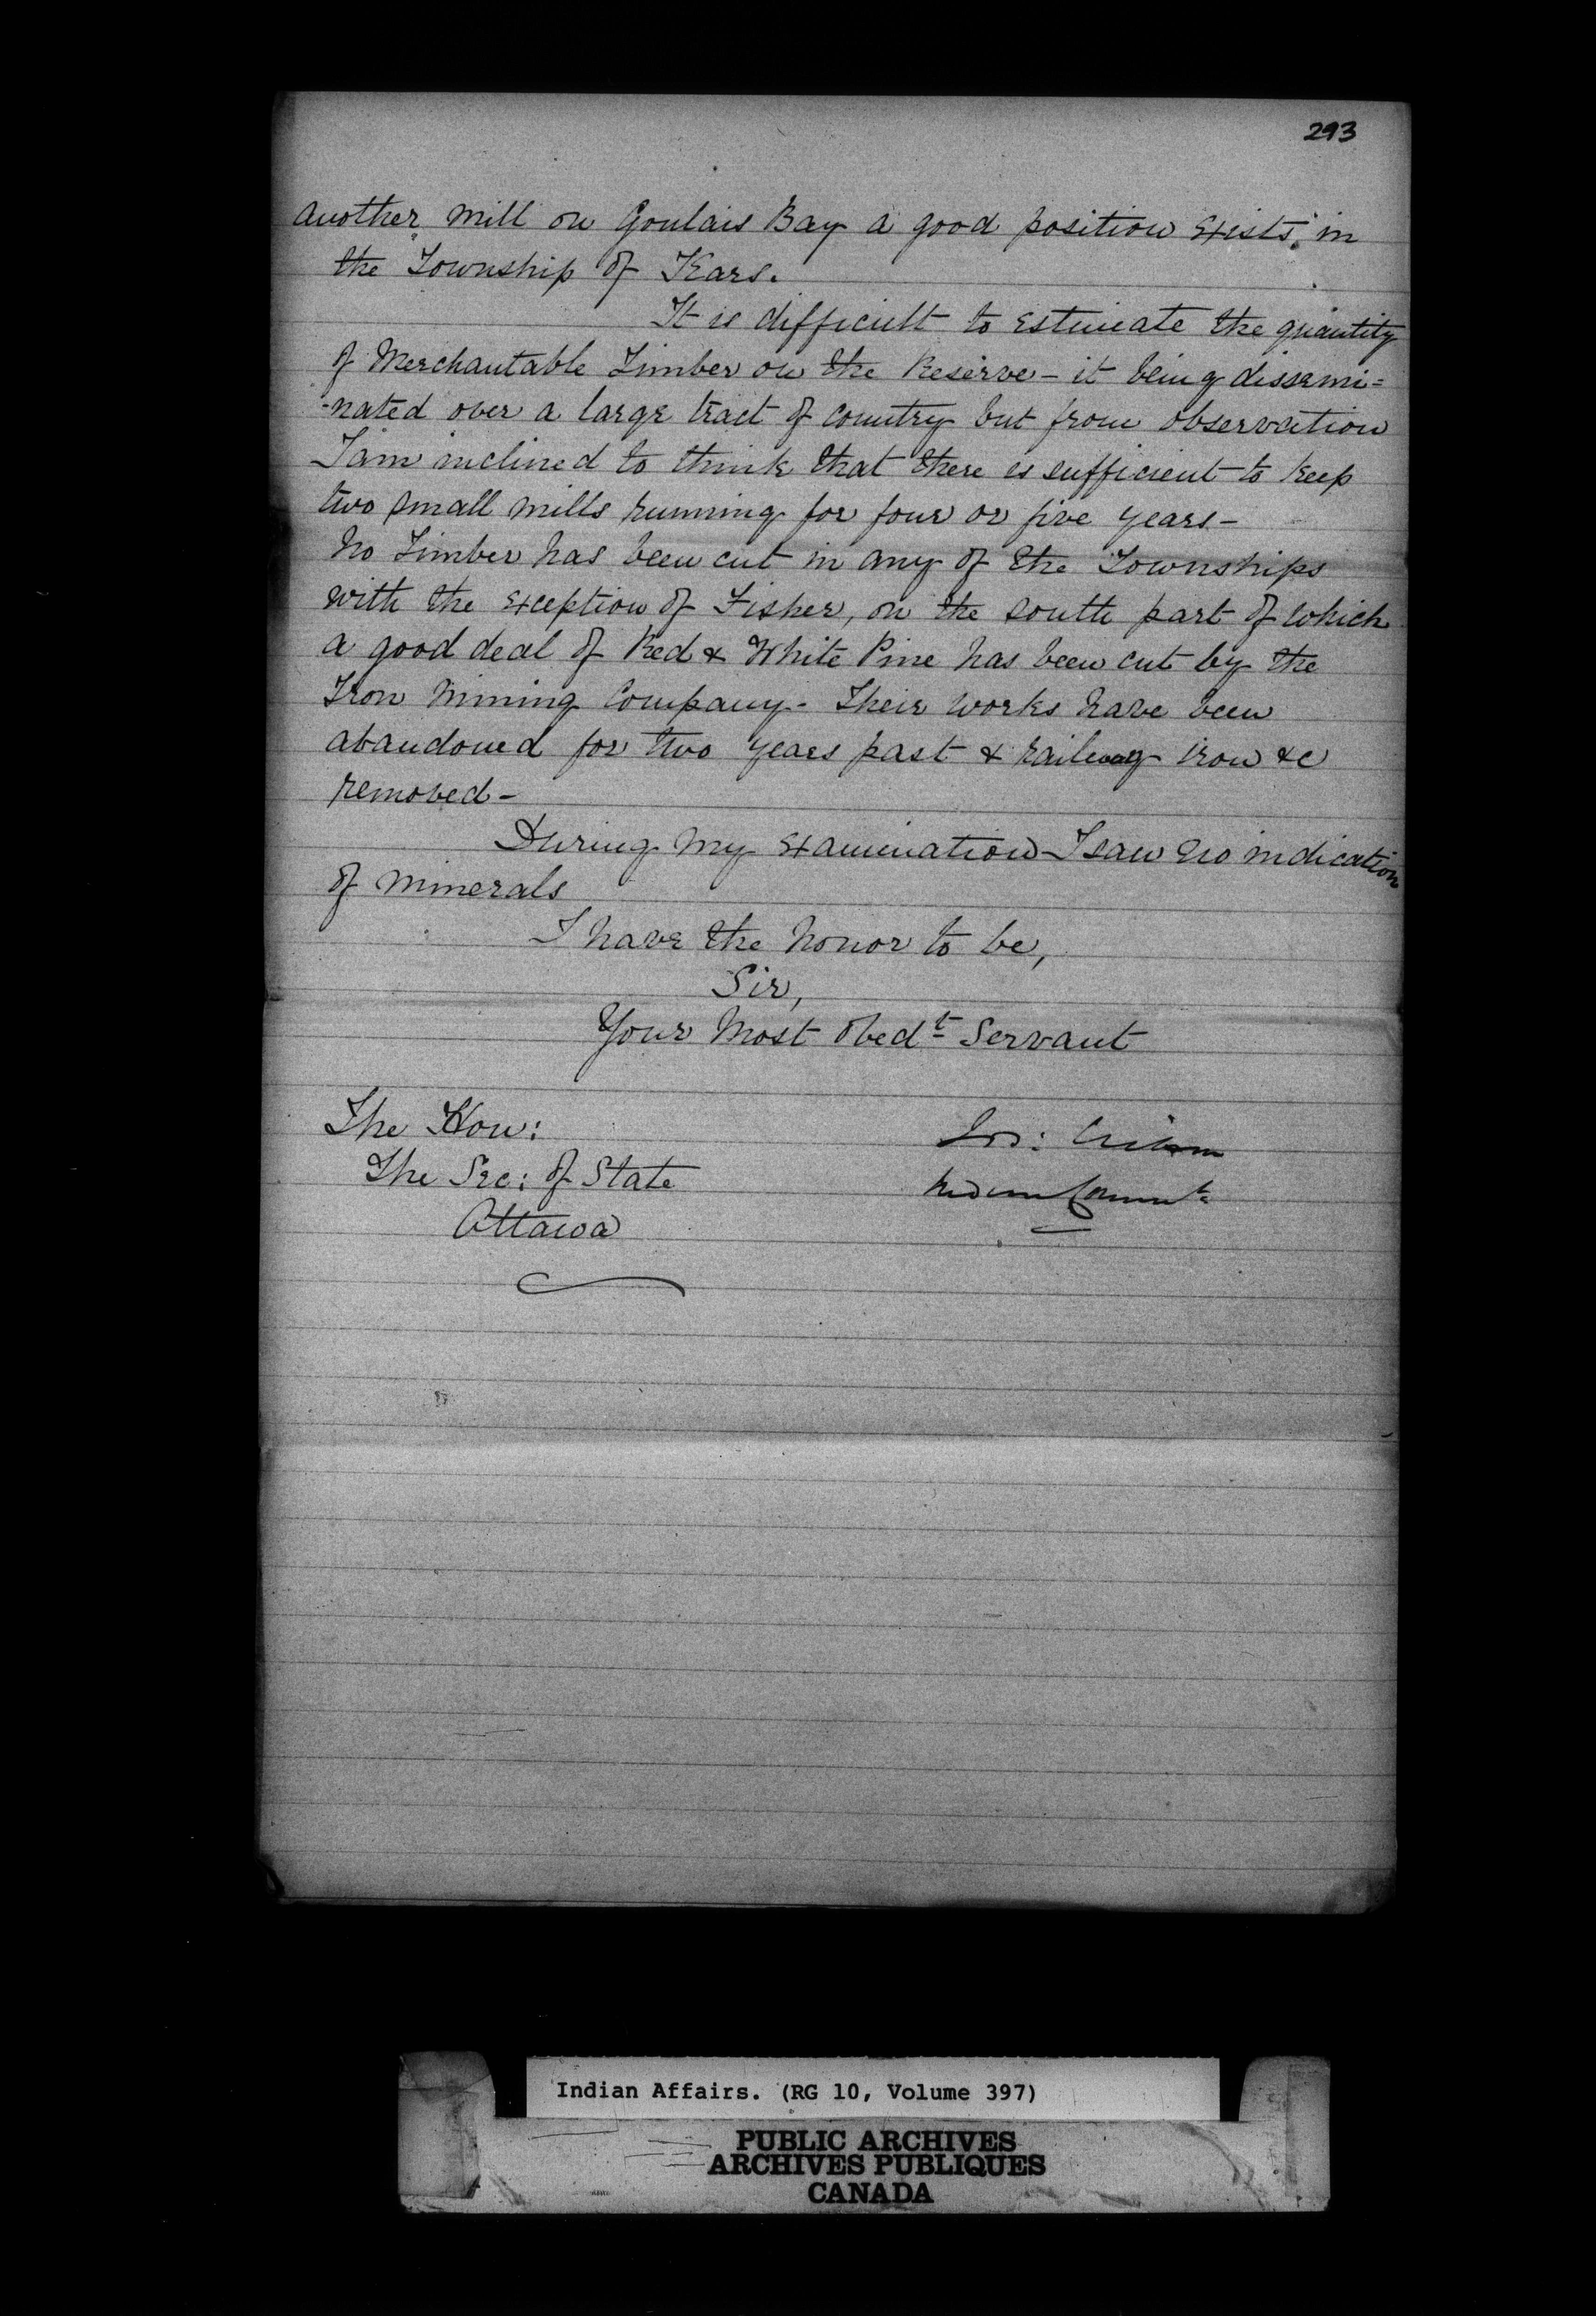 293
another mill on Goulais Bay a good position exists in
the Township of Kars.
It is difficult to estimate the quantity
of Merchantable Timber on the Reserve - it being dissemi=
-nated over a large tract of country but from observation
I am inclined to think that there is sufficient to keep
two small mills running for four or five years -
No Timber has been cut in any of the Townships
with the exception of Fisher, on the south part of which
a good deal of Red & White Pine has been cut by the
Iron Mining Company - Their works have been
abandoned for two years past & railway iron &c
removed -
During my examination I saw no indication
of minerals
I have the honor to be,
Sir,
Your Most Obedt Servant
The Hon:
The Sec: of State
Ottawa
Indian Affairs. (RG 10, Volume 397)
PUBLIC ARCHIVES
ARCHIVES PUBLIQUES
CANADA